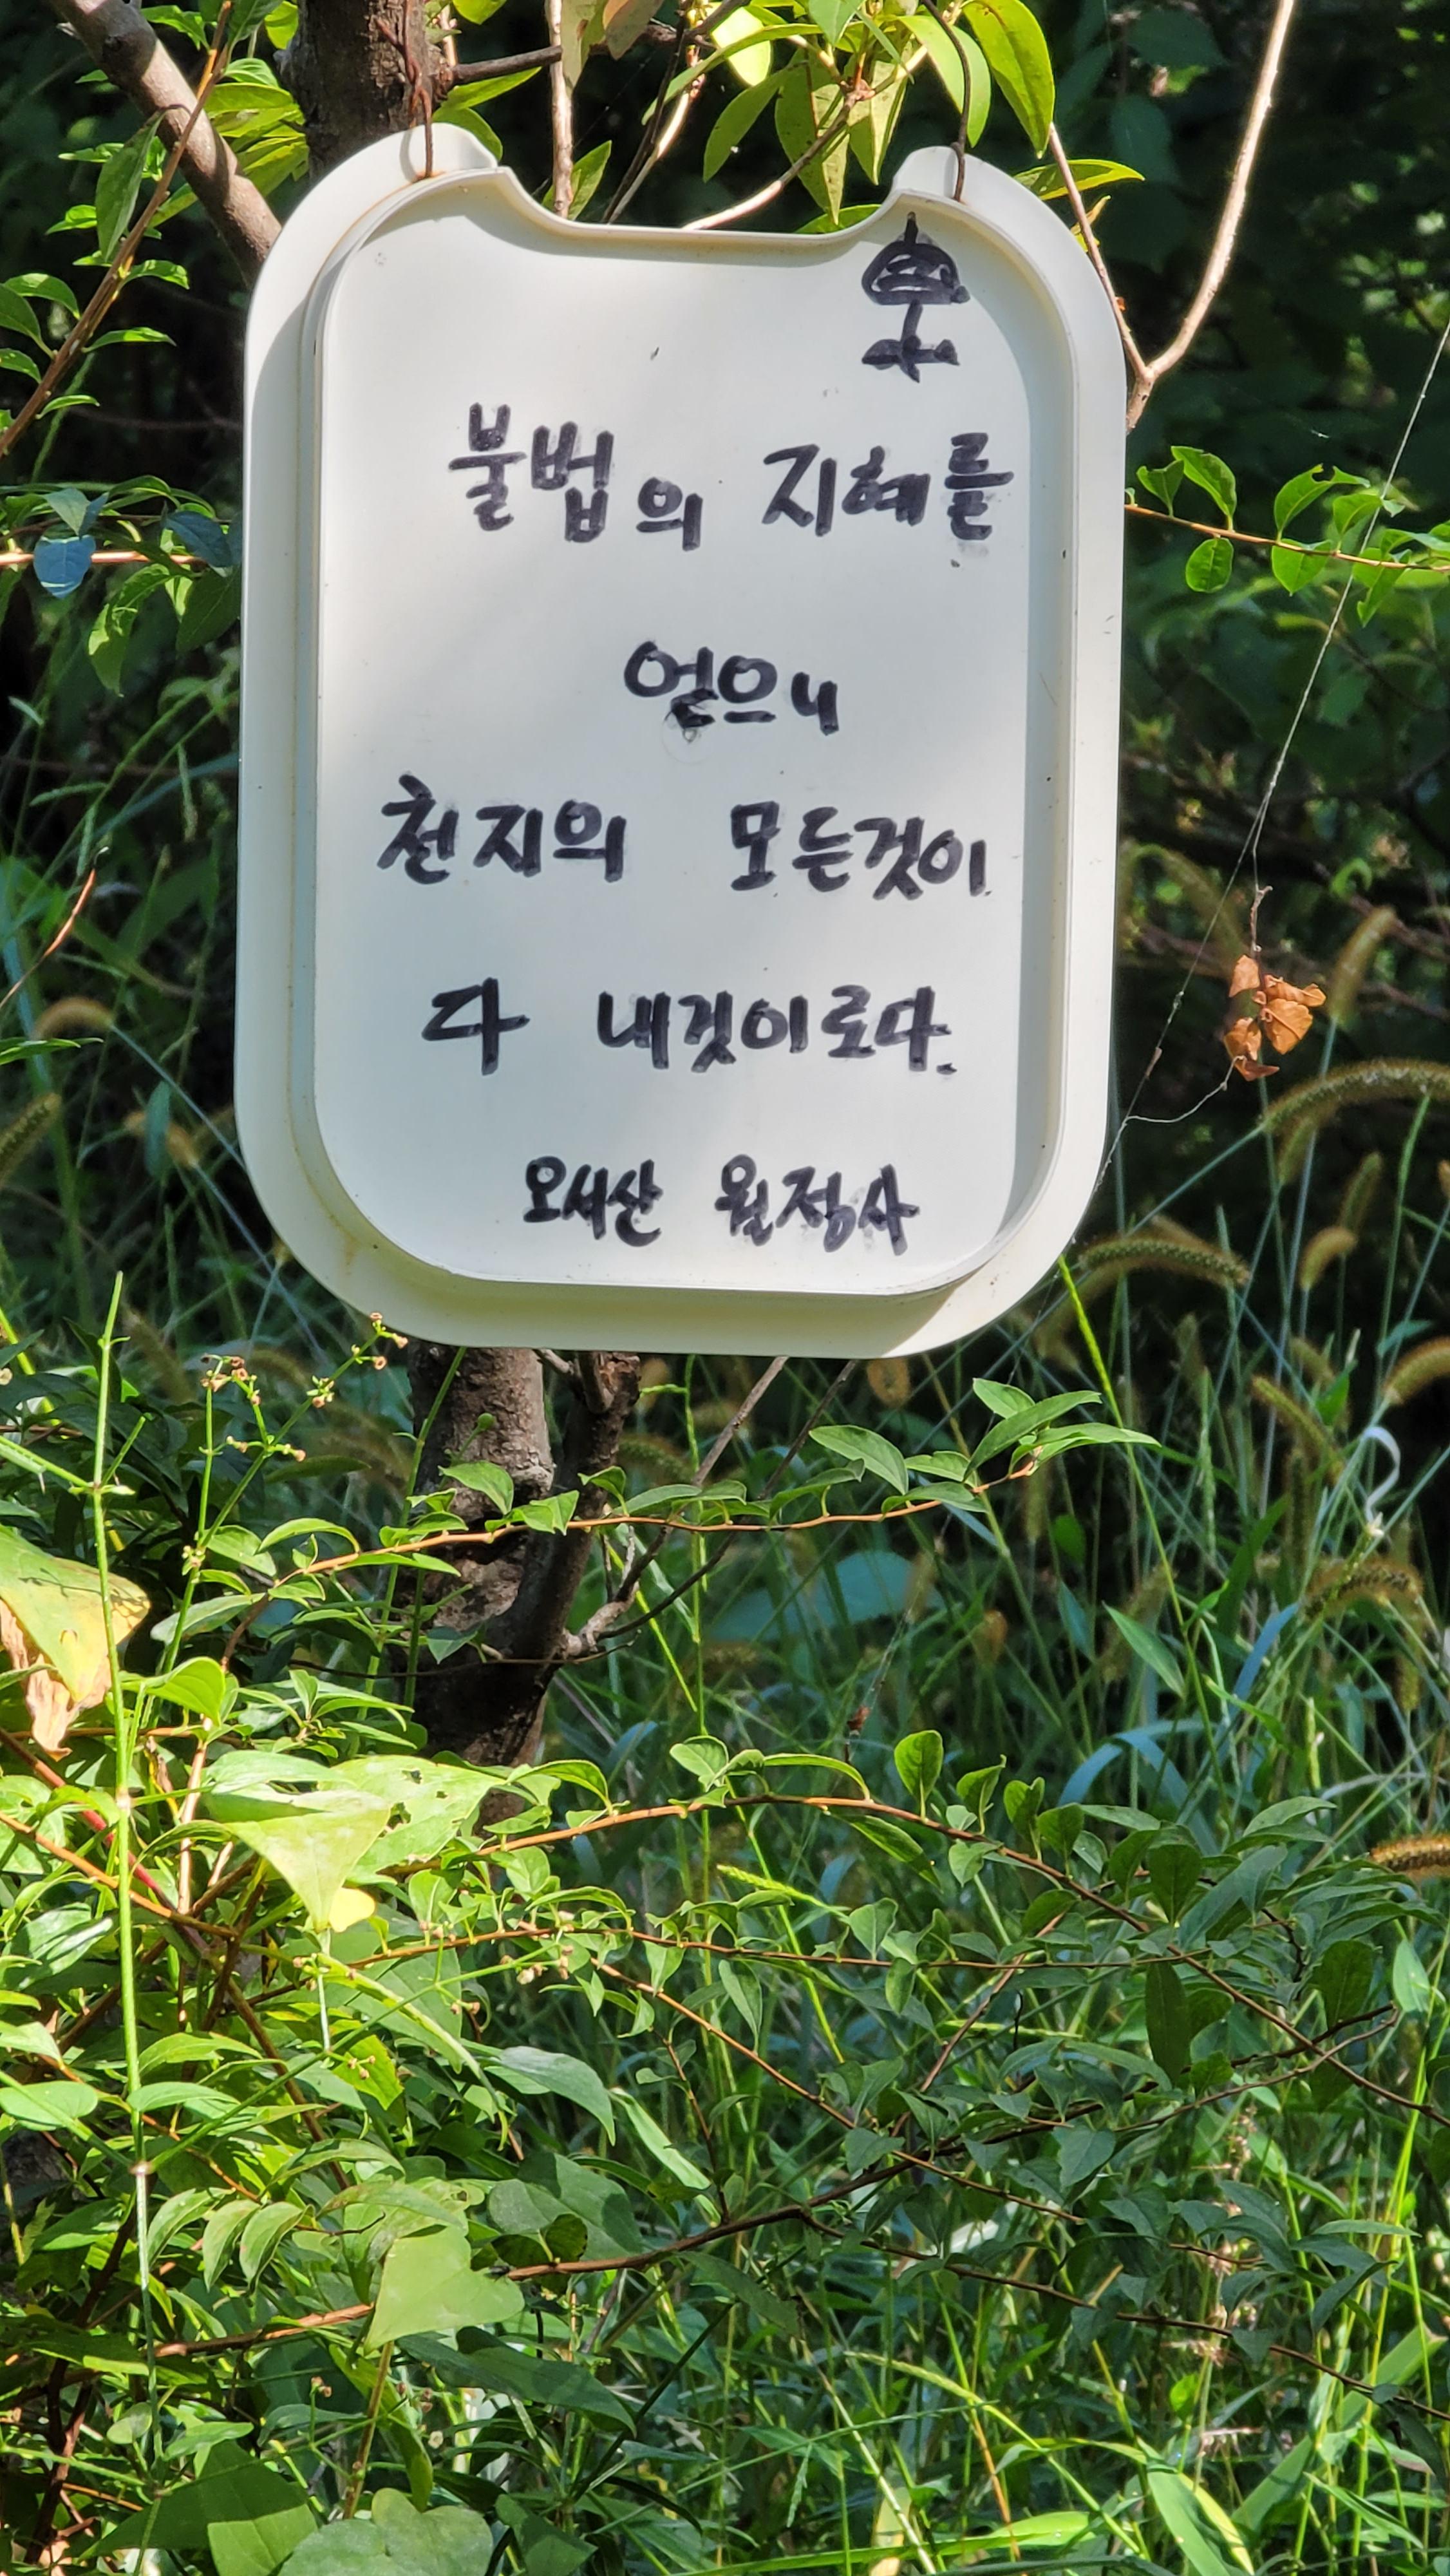 불법의 지혜를
얻으니
천지의 모든것이
다 내것이로다.
오서산 월정사